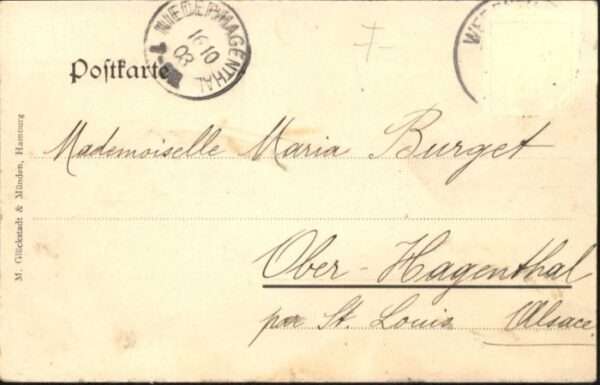 NIEDERHAGENTHAL
16 10
03
Postkarte
Mademoiselle Maria Burget
Ober-Hagenthal
par St. Louis Alsace.
M. Glückstadt & Münden, Hamburg